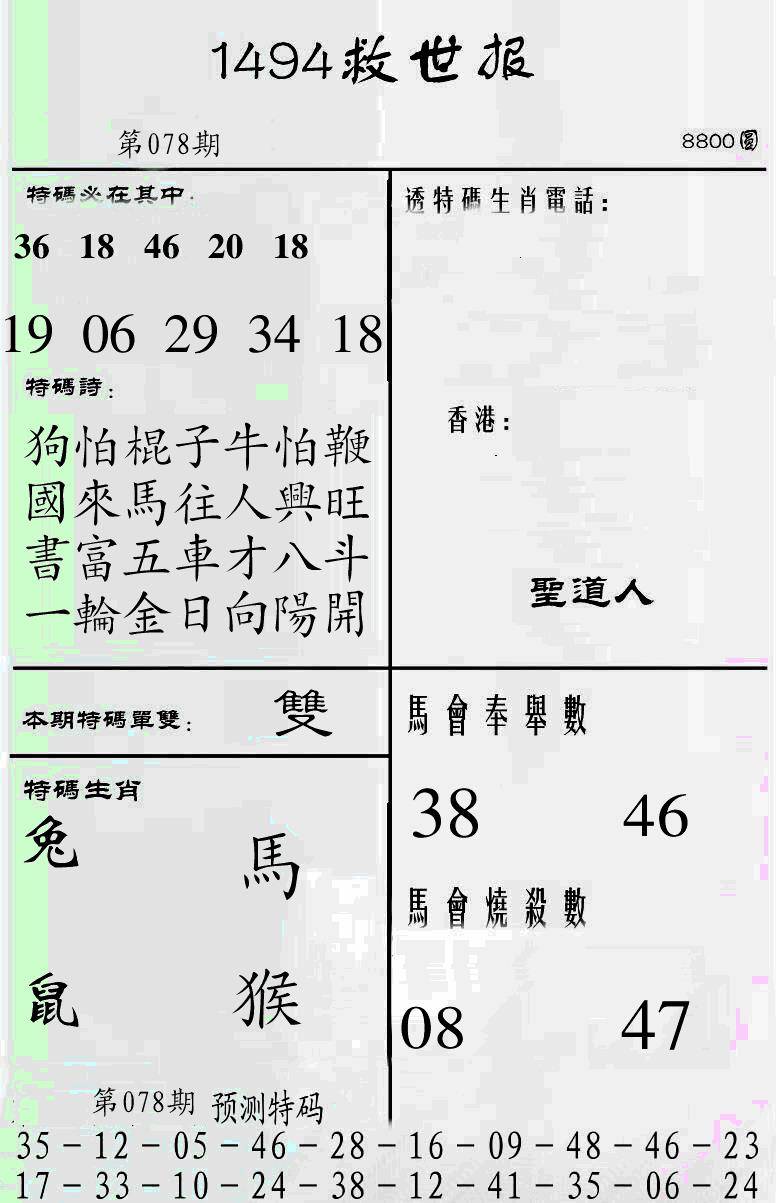 1494救世报
第078期
8800圓
特碼必在其中.
36 18 46 20 18
19 06 29 34 18
特碼詩:
狗怕棍子牛怕鞭
國來馬往人興旺
書富五車才八斗
一輪金日向陽開
透特碼生肖電話:
香港:
聖道人
本期特碼單雙:
雙
特碼生肖
兔 馬
鼠 猴
馬會奉舉數
38 46
馬會燒殺數
08 47
第078期 预测特码
35－12－05－46－28－16－09－48－46－23
17－33－10－24－38－12－41－35－06－24